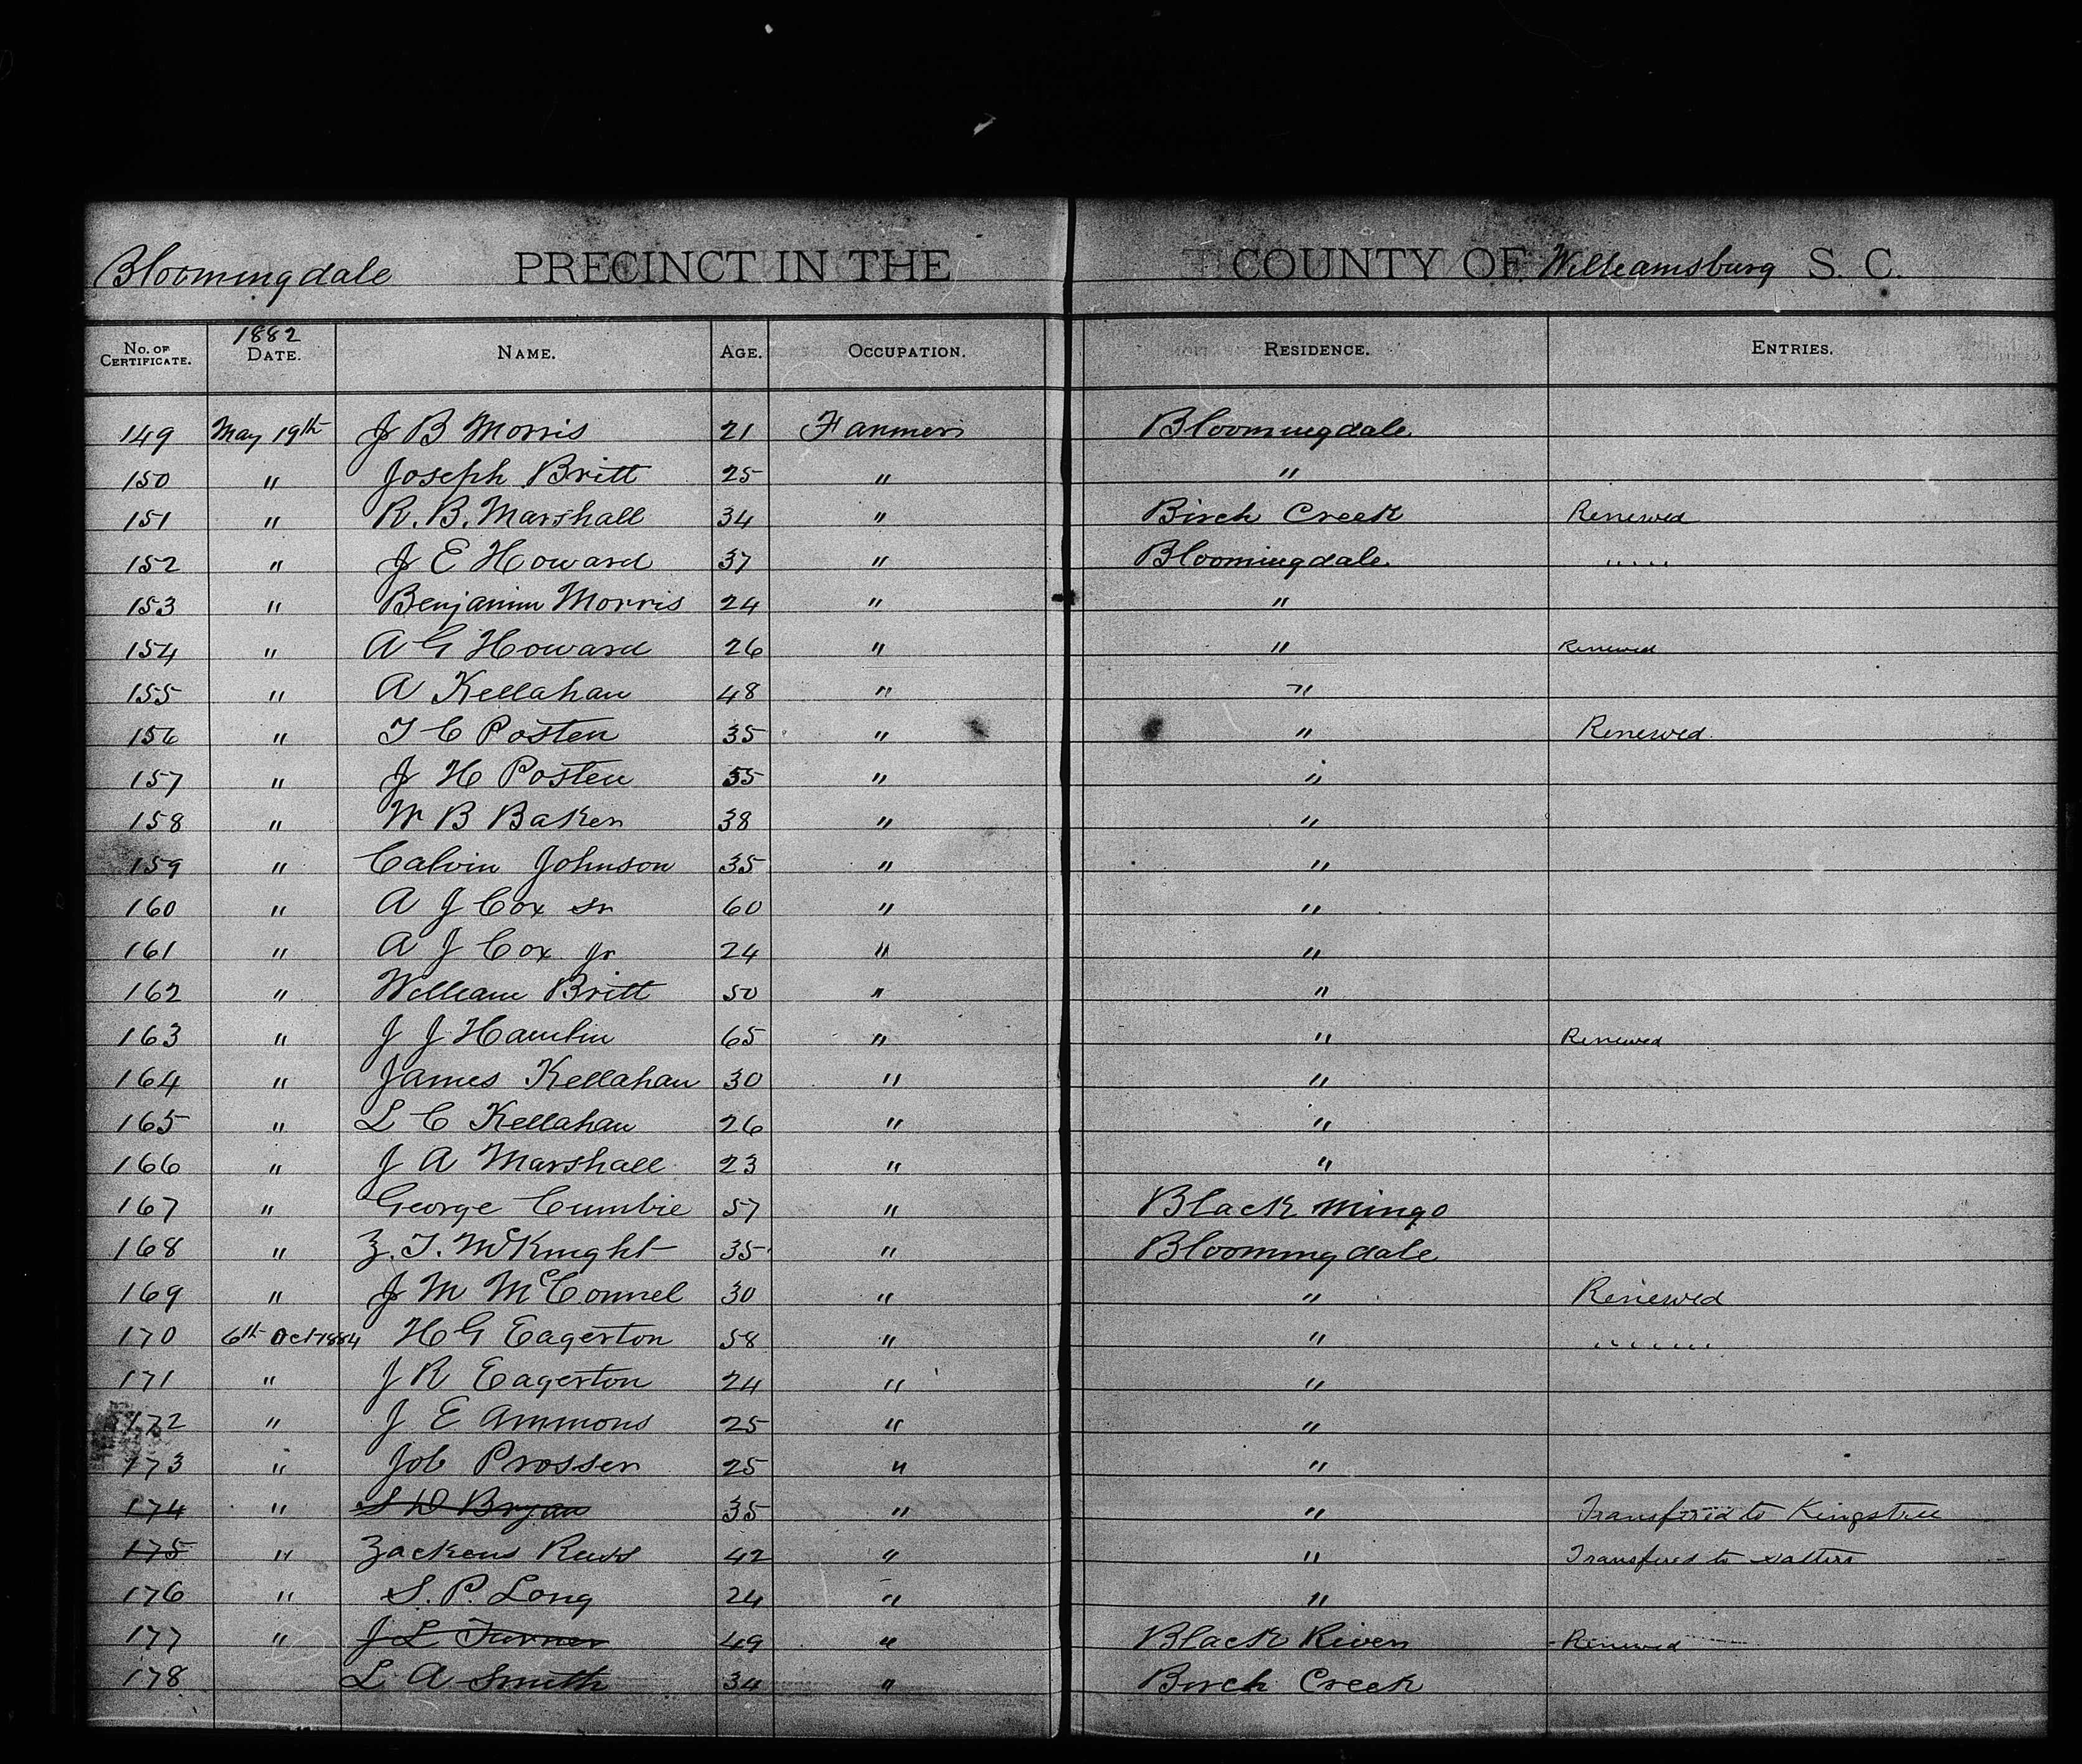 Bloomingdale PRECINCT IN THE COUNTY OF Williamsburg S. C.
1882
No. of Certificate. Date. Name. Age. Occupation. Residence. Entries.
149 May 19th J B Morris 21 Farmer Bloomingdale
150 " Joseph Britt 25 " "
151 " R. B. Marshall 34 " Birch Creek Renewed
152 " J E Howard 37 " Bloomingdale " "
153 " Benjamin Morris 24 " "
154 " A G Howard 26 " " Renewed
155 " A Kellahan 48 " "
156 " T C Posten 35 " " Renewed
157 " J H Posten 55 " "
158 " W B Baker 38 " "
159 " Calvin Johnson 35 " "
160 " A J Cox Sr 60 " "
161 " A J Cox Jr 24 " "
162 " William Britt 50 " "
163 " J J Hamlin 65 " " Renewed
164 " James Kellahan 30 " "
165 " L C Kellahan 26 " "
166 " J A Marshall 23 " "
167 " George Cumbie 57 " Black Mingo
168 " Z. T. McKnight 35 " Bloomingdale
169 " J M McConnel 30 " " Renewed
170 6th Oct 1884 H G Eagerton 58 " " " "
171 " J R Eagerton 24 " "
172 " J E Ammons 25 " "
173 " Job Prosser 25 " "
174 " S W Bryan 35 " " Transfered to Kingstree
175 " 42 " " Transfered to Salters
176 " S. P. Long 24 " "
177 " J L Turner 49 " Black River Renewed
178 L A Smith 34 " Birch Creek